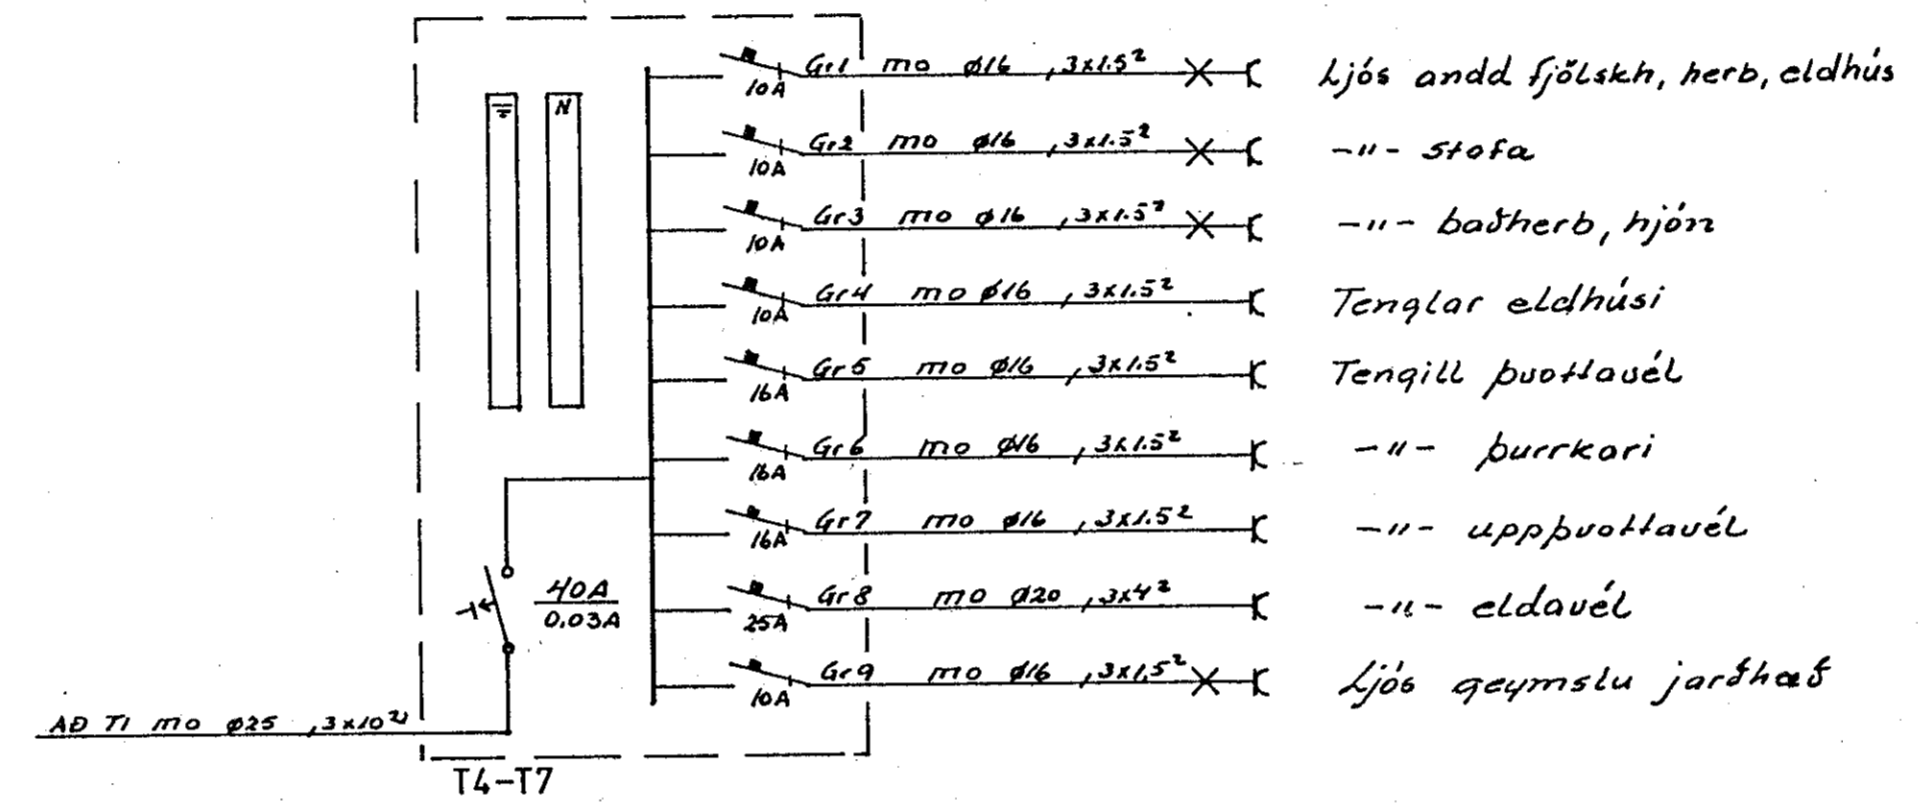 Gr1 mo ø16 , 3x1.5² Ljós andd fjölskh, herb, eldhús
10A
N
Gr2 mo ø16 , 3x1.5² -"- stofa
10A
Gr3 mo ø16 , 3x1.5² -"- baðherb, hjón
10A
Gr4 mo ø16 , 3x1.5² Tenglar eldhúsi
10A
Gr5 mo ø16 , 3x1.5² Tengill þvottavél
16A
Gr6 mo ø16 , 3x1.5² -"- þurrkari
16A
Gr7 mo ø16 , 3x1.5² -"- uppþvottavél
16A
40A
0.03A
Gr8 mo ø20 , 3x4² -"- eldavél
25A
Gr9 mo ø16 , 3x1.5² Ljós geymslu jarðhæð
10A
AÐ T1 mo ø25 , 3x10²
T4-T7